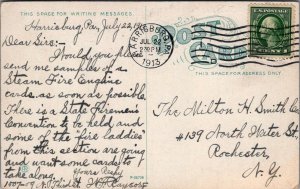 THIS SPACE FOR WRITING MESSAGES.
Harrisburg, Pa, July 22,
Dear Sirs:-
Would you please
send me samples of
Steam Fire Engine
cards as soon as possible.
There is a State Firemen's
Convention to be held and
some of the "fire laddies"
from this section are going
and want some cards to
take along.
Yours truly
HARRISBURG, PA.
JUL 22
1913
THIS SPACE FOR ADDRESS ONLY.
The Milton H. Smith Co
#139 North Water St.
Rochester,
N. Y.